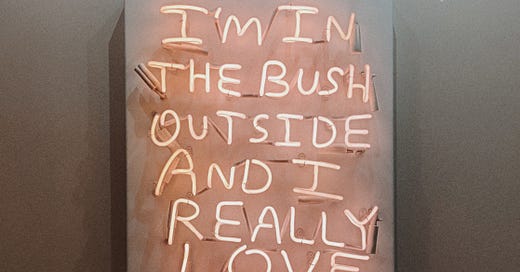 I'M IN
THE BUSH
OUTSIDE
AND I
REALLY
LOVE